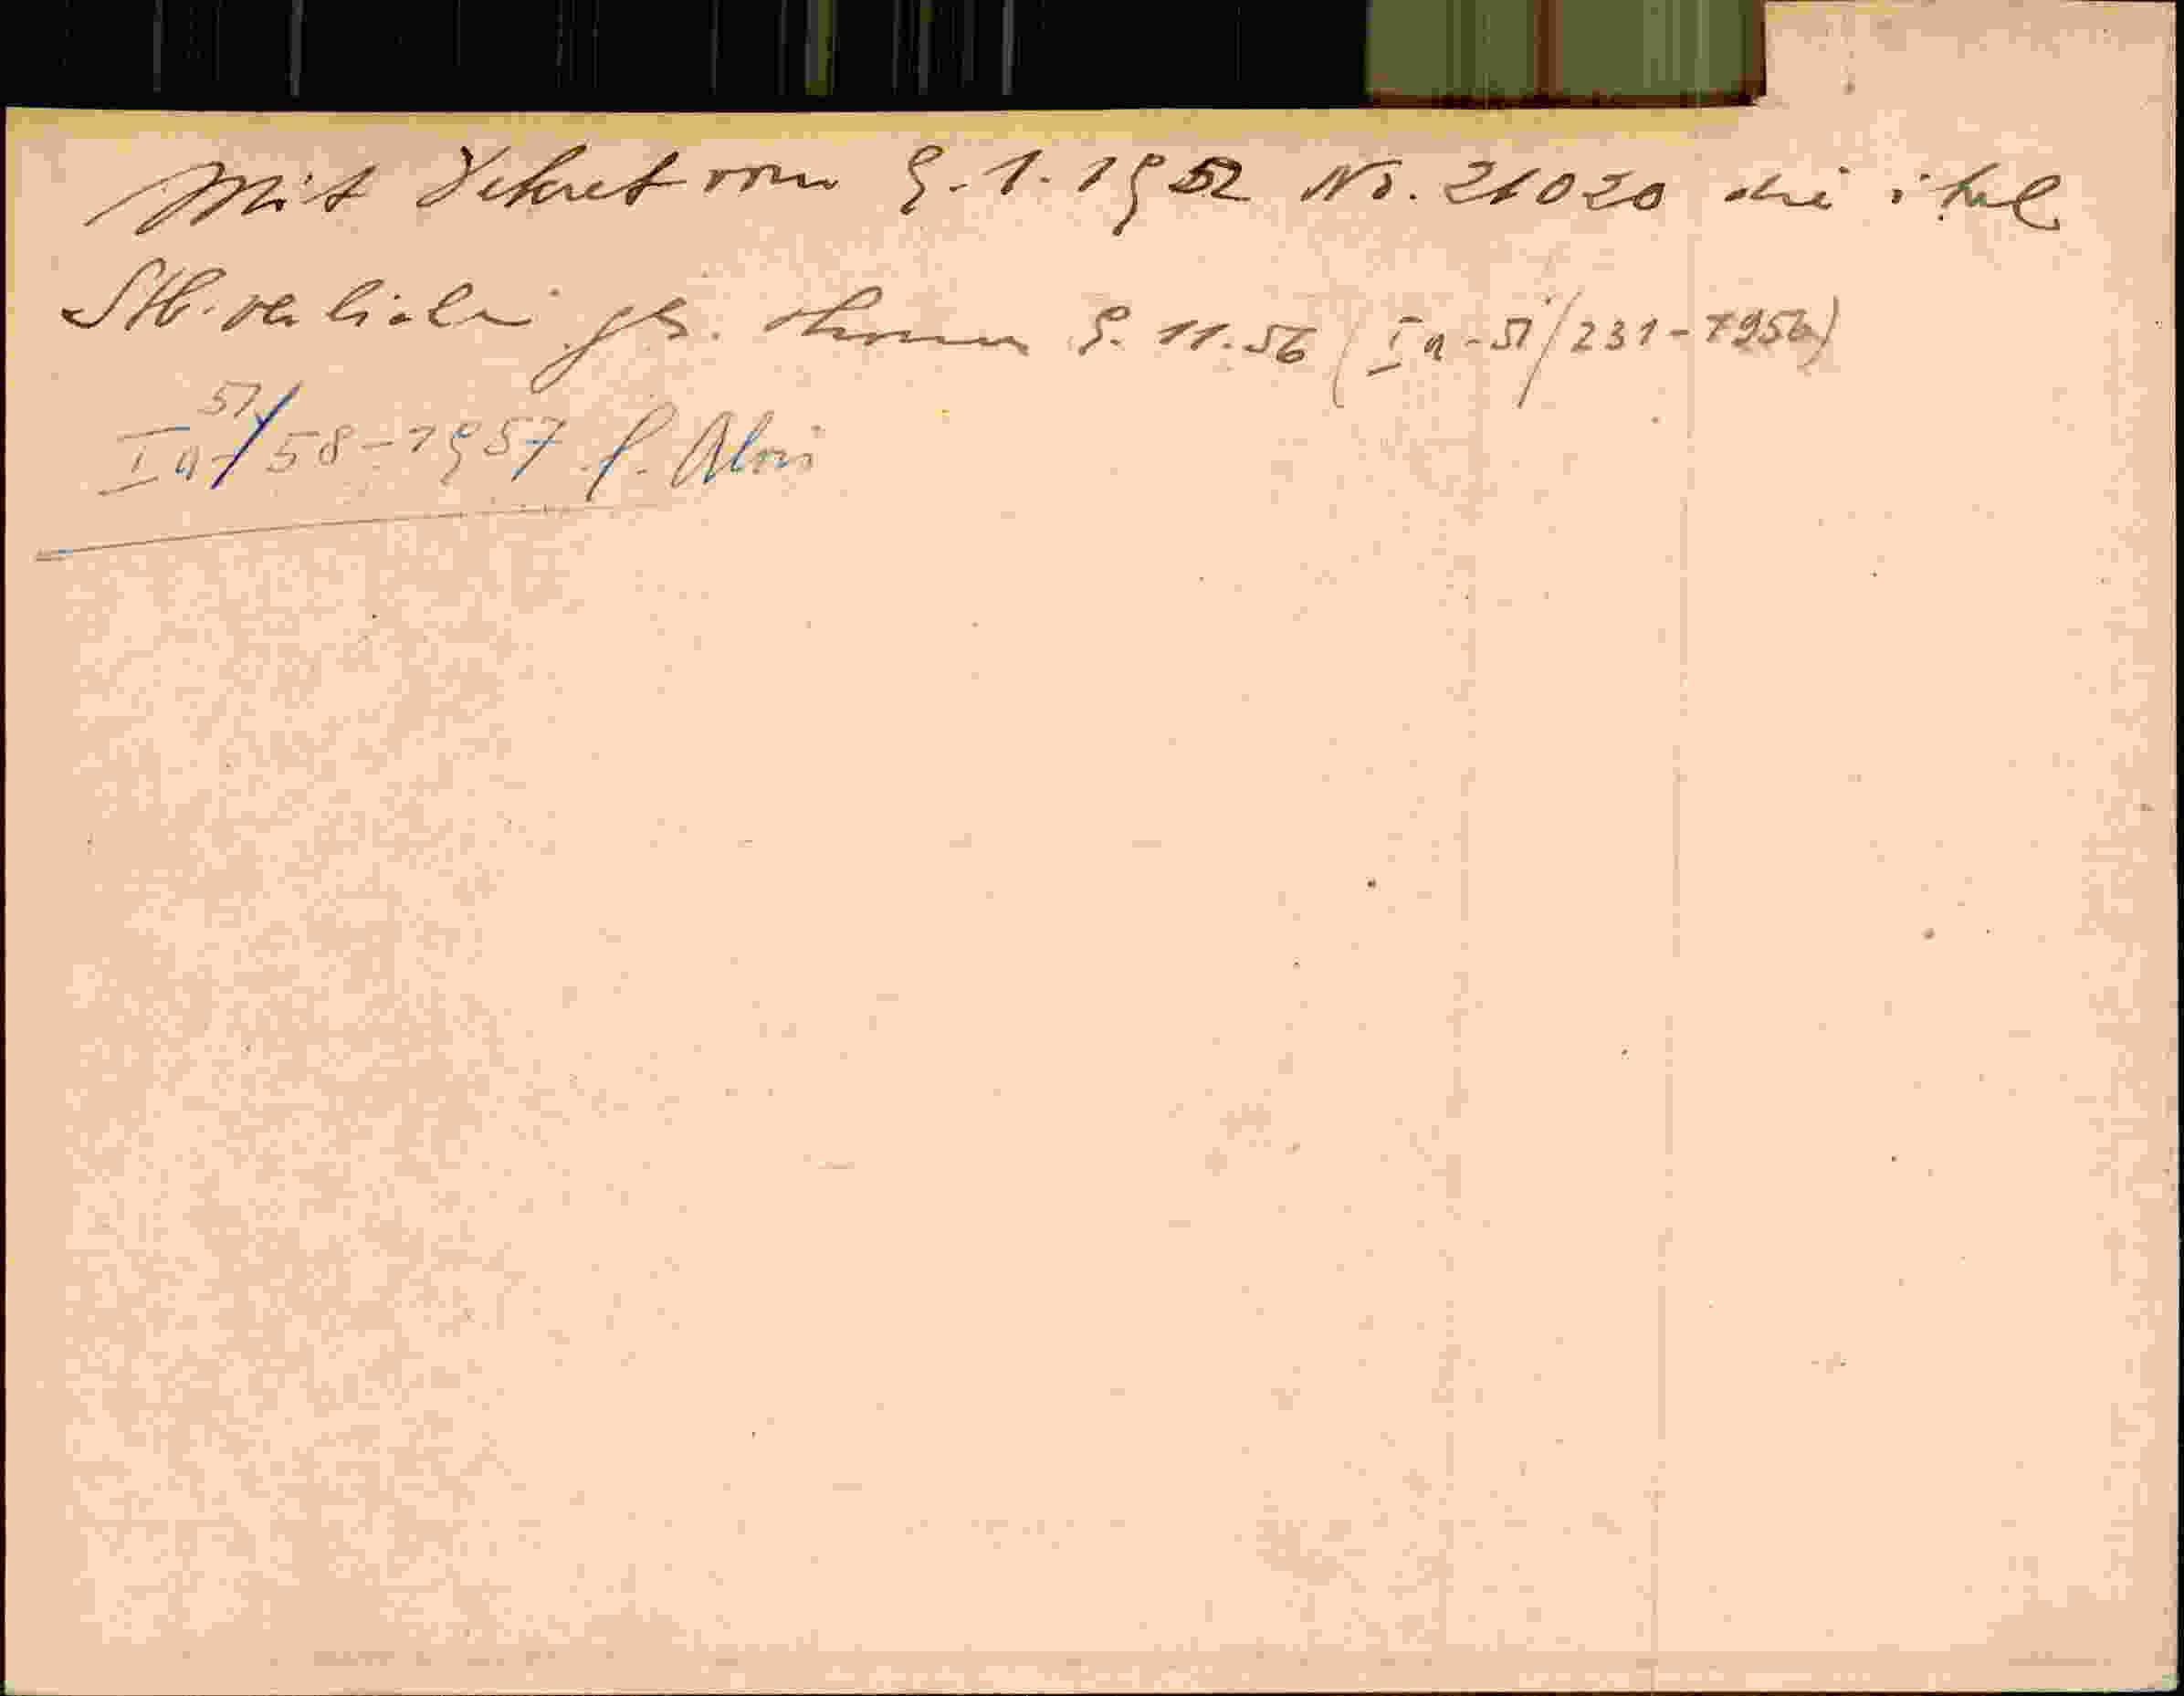 Mit Dekret vom 9.1.1952 No. 21020 die ital.
Stb. verliehen 9.11.56 (Ia-51/231-1956)
Ia-51/58-1957 f. Alois